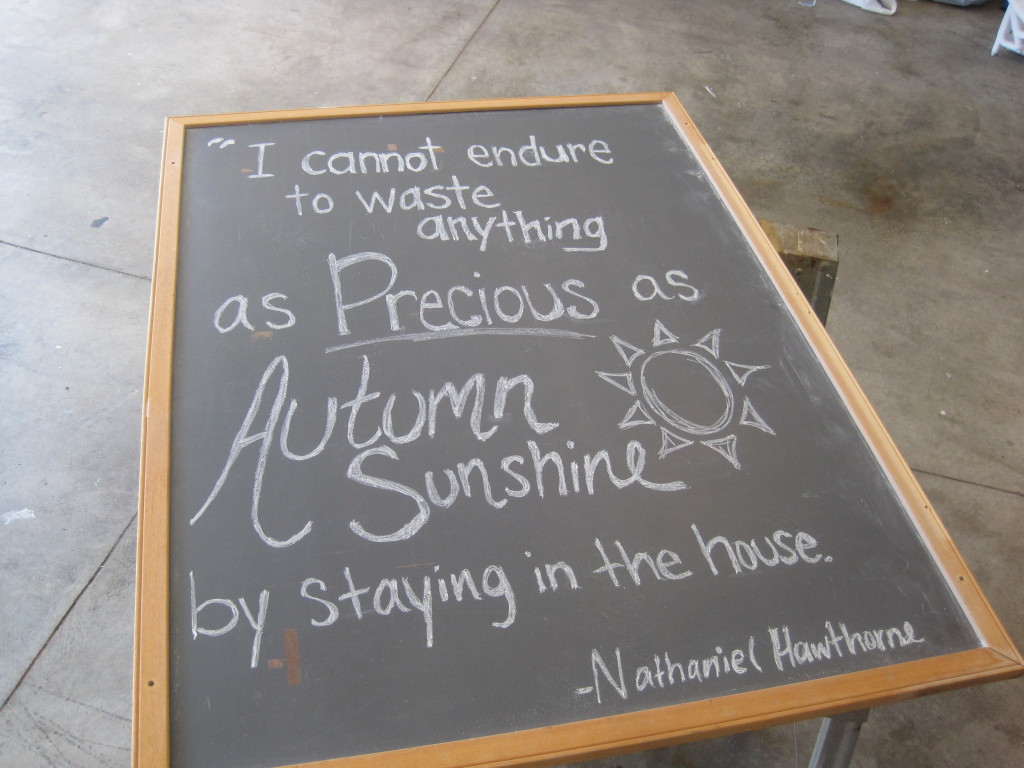 “I cannot endure
to waste
anything
as Precious as
Autumn
Sunshine
by staying in the house.
-Nathaniel Hawthorne